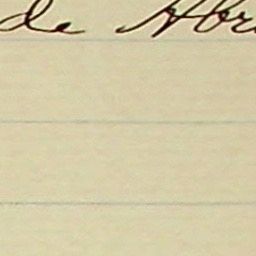 de Abr